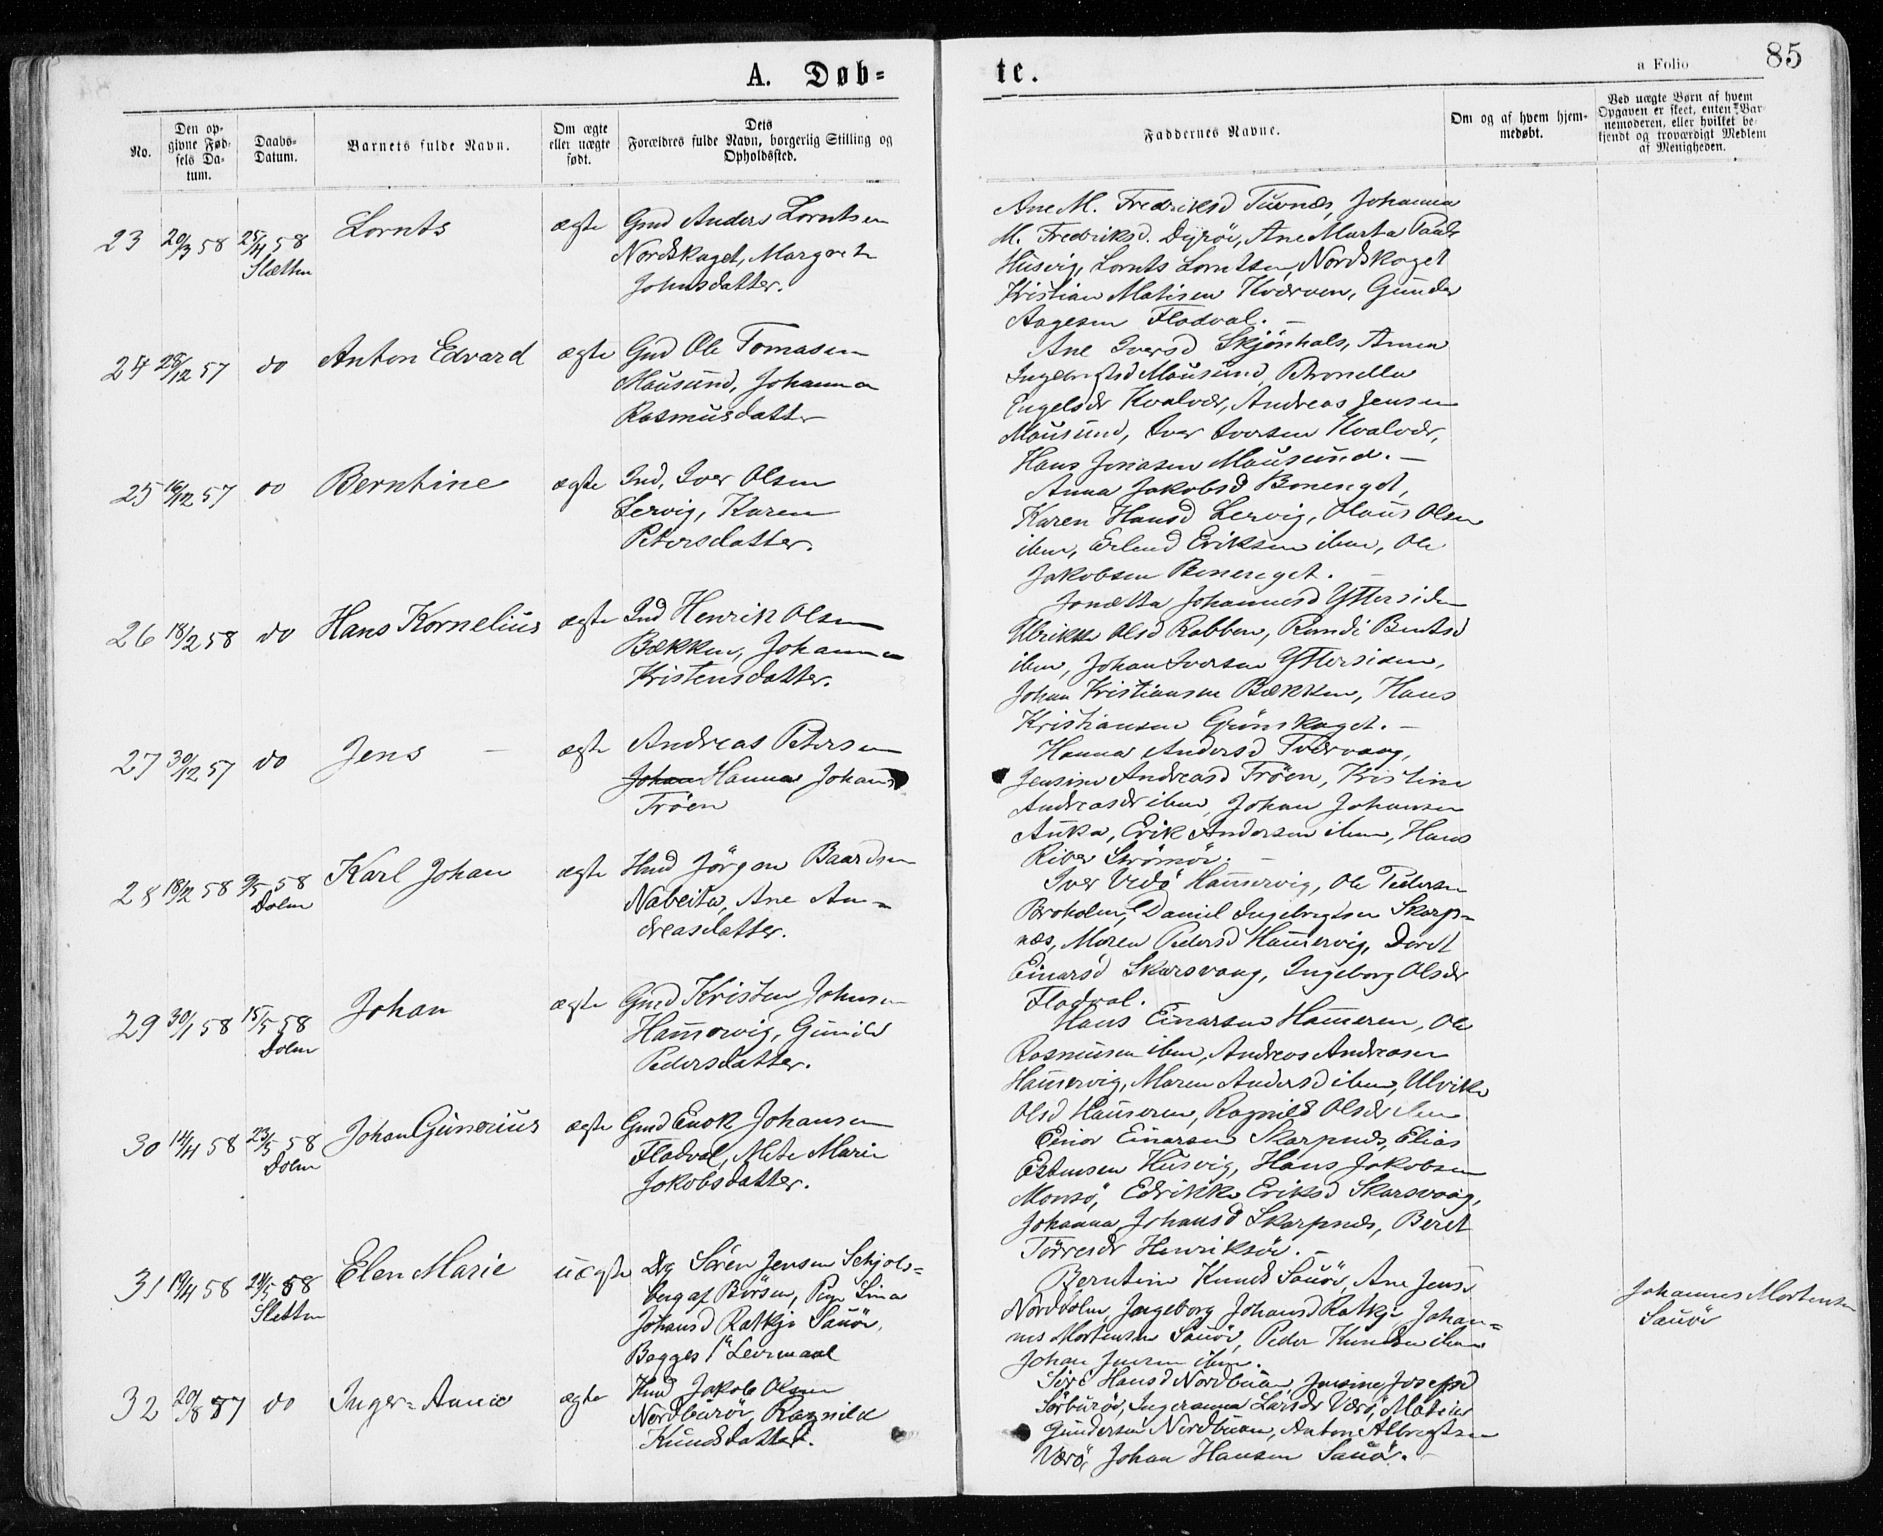 A. Døb=
te.
a Folio
85
No.
Den op-
givne Fød-
sels Da-
tum.
Daabs-
Datum.
Barnets fulde Navn.
Om ægte
eller uægte
født.
Dets
Forældres fulde Navn, borgerlig Stilling og
Opholdssted.
Faddernes Navne.
Om og af hvem hjem-
medøbt.
Ved uægte Børn af hvem
Opgaven er skeet, enten Bar-
nemoderen, eller hvilket be-
kjendt og troværdigt Medlem
af Menigheden.
23 20/3 58 25/4 58
Slætten
Lornts
ægte
Gmd Anders Lorntsen
Nordskaget, Margrete
Johnsdatter.
Ane M. Fredriksd Tuvnæs, Johanna
M. Fredriksd. Dyröi, Ane Marta Paals
Husvig, Lornts Lorntsen Nordskaget
Kristian Matisen Kværven, Gunder
Aagesen Fladval. –
24 28/12 57 do
Anton Edvard
ægte
Gmd Ole Tomasen
Mausund, Johanna
Rasmusdatter
Ane Iversd Skjönhals, Anna
Ingebrigtsd Mausund, Pernella
Engelsdr Kvalvær, Andreas Jensen
Mausund, Iver Iversen Kvalvær,
Hans Jonasen Mausund. –
25 16/12 57 do
Berntine
ægte
Ind. Iver Olsen
Lervig, Karen
Petersdatter.
Anna Jakobsd Bonenget,
Karen Hansd Lervig, Olaus Olsen
ibm, Erlend Eriksen ibm, Ole
Jakobsen Bonenget. –
26 18/2 58 do
Hans Kornelius
ægte
Ind Henrik Olsen
Bækken, Johanna
Kristensdatter.
Jonetta Johannesd Yttersiden
Ulrikke Olsd Rabben, Randi Bentsd
ibm, Johan Iversen Yttersiden,
Johan Kristiansen Bækken, Hans
Kristiansen Grönskaget. –
27 30/12 57 do
Jens –
ægte
Andreas Petersen
Johan Hanna Johans
Tröen
Hanna Andersd Tværvaag,
Jensine Andreasd Tröen, Kristine
Andreasdr ibm, Johan Johansen
Auka, Erik Andersen ibm, Hans
Riber Strömöi. –
28 18/2 58 9/5 58
Dolm
Karl Johan
ægte
Hmd Jörgen Baardsen
Nabeita, Ane An-
dreasdatter.
Iver Vedö Hamervig, Ole Pedersen
Broholm, Daniel Ingebrigtsen Skarp-
næs, Maren Pedersd Hamervig, Dordt
Einarsd Skarsvaag, Ingeborg Olsdr
Fladval.
29 30/1 58 15/5 58
Dolm
Johan
ægte
Gmd Kristen Johnsen
Hamervig, Gunild
Pedersdatter.
Hans Einarsen Hameren, Ole
Rasmusen ibm, Andreas Andreasen
Hamervig, Maren Andersd ibm, Ulrikke
Olsd Hameren, Ragnild Olsdr ibm
30 14/4 58 23/5 58
Dolm
Johan Gunerius
ægte
Gmd Enok Johansen
Fladval, Mete Marie
Jakobsdatter.
Einar Einarsen Skarpnæs, Elias
Estensen Husvig, Hans Jakobsen
Mansö, Edrikke Eriksd Skarsvaag,
Johanna Johansd Skarpnæs, Beret
Törresdr Henriksöi. –
31 19/4 58 24/5 58
Sletten
Elen Marie
uægte
Dg Sören Jensen Schjols-
berg af Börsen, Pige Lina
Johansd Ratkje Sauöi.
Begges 1ste Leiermaal
Berntine Knudsd Sauöi, Ane Jensd
Norddolm, Ingeborg Johansd Ratkje, Johan-
nes Mortensen Sauöi, Peder Knudsen ibm
Johan Jensen ibm.
Johannes Mortensen
Sauöi
32 20/8 57 do
Inger-Anna
ægte
Hmd Jakob Olsen
Nordburöi, Ragnild
Knudsdatter.
Siri Hansd Nordbuan, Jensine Josefsd
Sörburöi, Ingeranna Larsdr Værö, Matias
Gundersen Nordbuan, Anton Albregtsen
Værö, Johan Hansen Sauöi. –